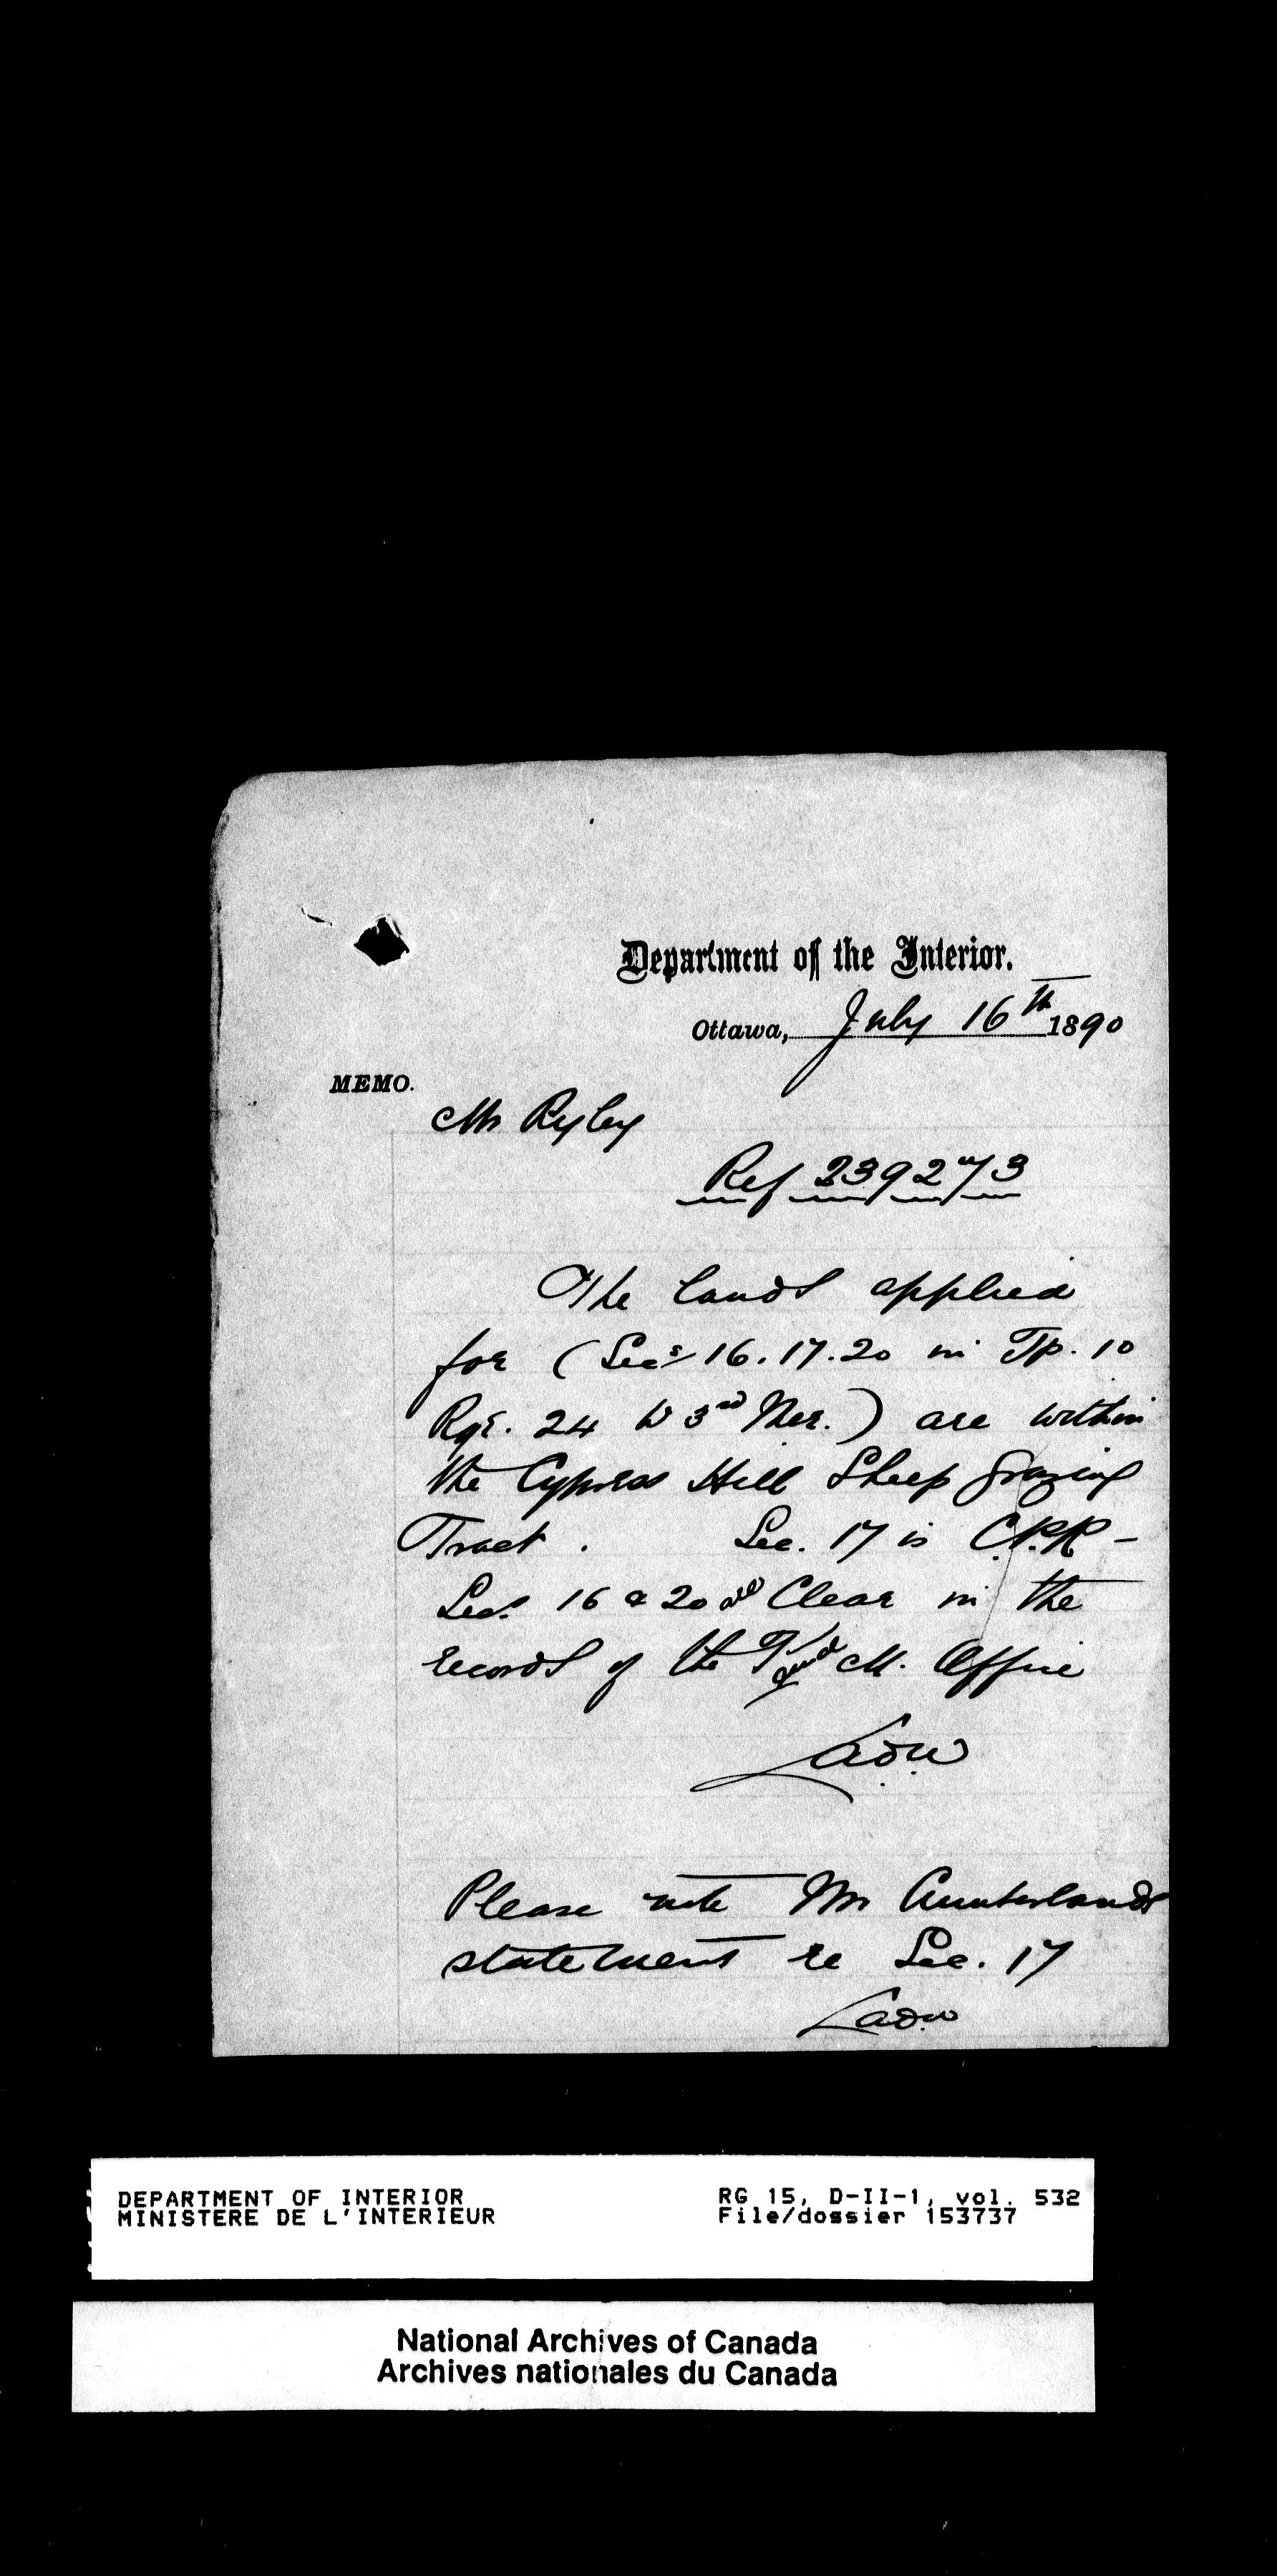 Department of the Interior.
Ottawa, July 16th 1890
MEMO.
Mr Ryley
Ref 239273
The lands applied
for (Secs 16. 17. 20 in Tp. 10
Rge. 24 W 3rd Mer.) are within
the Cypress Hill Sheep Grazing
Tract. Sec. 17 is C.P.R -
Secs 16 & 20 are Clear in the
records of the T and M. Office
Please note Mr Cumberlands
statement re Sec. 17
DEPARTMENT OF INTERIOR
MINISTERE DE L'INTERIEUR
RG 15, D-II-1, vol. 532
File/dossier 153737
National Archives of Canada
Archives nationales du Canada